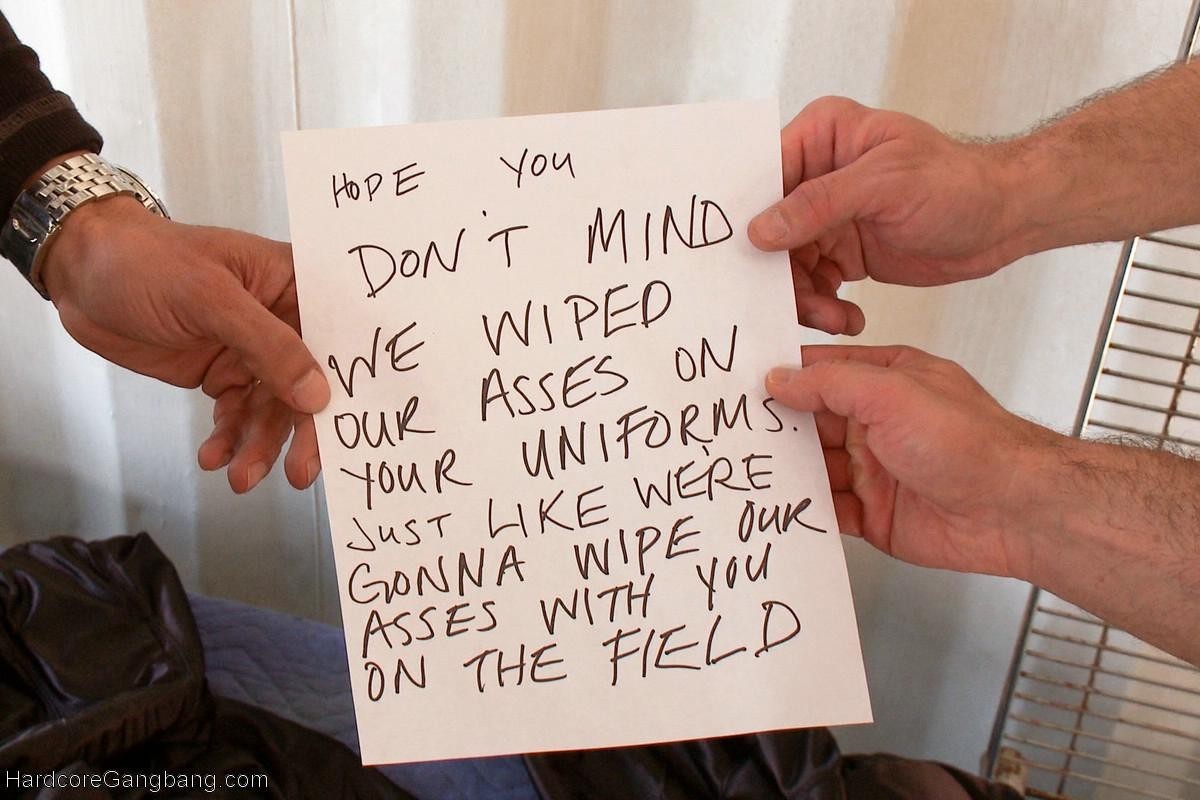 HOPE YOU
DON'T MIND
WE WIPED
OUR ASSES ON
YOUR UNIFORMS.
JUST LIKE WE'RE
GONNA WIPE OUR
ASSES WITH YOU
ON THE FIELD
HardcoreGangbang.com